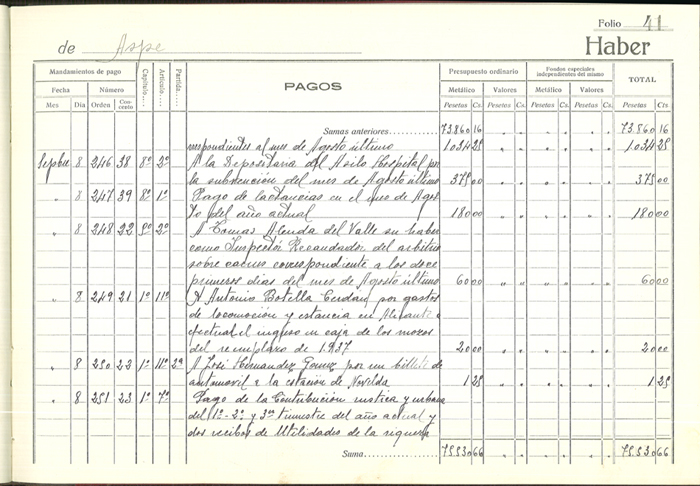 Folio 41
de Aspe
Haber
Mandamientos de pago Capítulo.... Artículo.... Partida.... PAGOS Presupuesto ordinario Fondos especiales independientes del mismo TOTAL
Fecha Número Metálico Valores Metálico Valores
Mes Día Orden Concepto Pesetas Cs. Pesetas Cs. Pesetas Cs. Pesetas Cs. Pesetas Cts.
Sumas anteriores 73.860 16 73.860 16
respondientes al mes de Agosto último 1034 25 1034 25
Sepbre 8 246 38 8º 2º A la Depositaria del Asilo Hospital por
la subvención del mes de Agosto último 375 00 375 00
" 8 247 39 8º 1º Pago de lactancias en el mes de Agos
to del año actual 180 00 180 00
" 8 248 22 2º A Tomas Alenda del Valle su haber
como Inspector Recaudador del arbitrio
sobre carnes correspondiente a los doce
primeros días del mes de Agosto último 60 00 60 00
" 8 249 21 1º 11º A Antonio Botella Cerdán por gastos
de locomoción y estancia en Alicante
efectuar el ingreso en caja de los mozos
del remplazo de 1.937 20 00 20 00
" 8 250 22 1º 11º 2ª A José Hernandez Gomez por un billete de
automovil a la estación de Novelda 1 25 1 25
" 8 251 23 1º 7º Pago de la Contribución rustica y urbana
del 1º-2º y 3er trimestre del año actual y
dos recibos de Utilidades de la riqueza
Suma 75.530 66 75.530 66